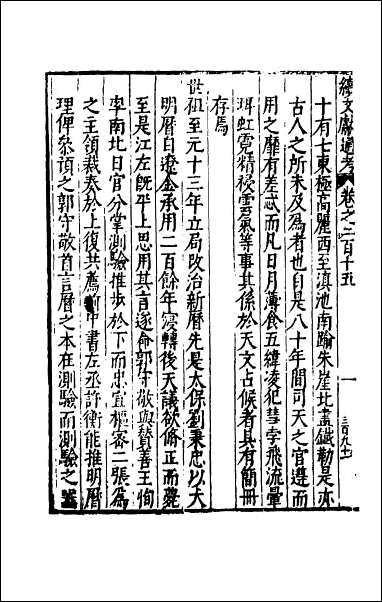 續文獻通考 卷之二百十五 一
十有七東極高麗西至滇池南踰朱崖北盡鐵勒是亦
古人之所未及爲者也自是八十年間司天之官遵而
用之靡有差忒而凡日月薄食五緯凌犯彗孛飛流暈
珥虹霓精祲雲氣等事其係於天文占候者具有簡冊
存焉
世祖至元十三年立局改治新曆先是太保劉秉忠以大
明曆自遼金承用二百餘年寖轉後天議欲脩正而薨
至是江左旣平上思用其言遂命郭守敬與贊善王恂
率南北日官分掌測驗推步於下而忠宜樞密二張爲
之主領裁奏於上復共薦中書左丞許衡能推明曆
理俾參預之郭守敬首言曆之本在測驗而測驗之器